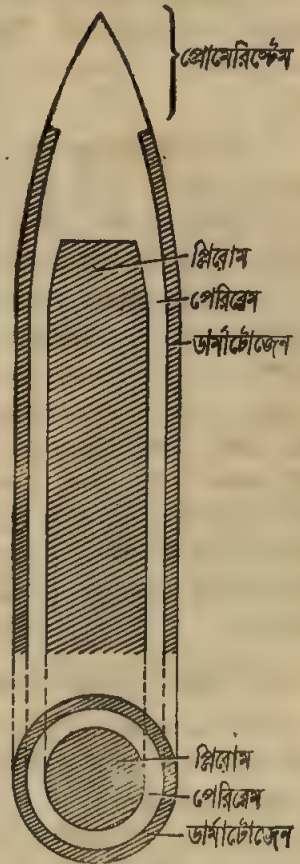 প্রোমেরিস্টেম
প্লিরোম
পেরিব্লেম
ডার্মাটোজেন
প্লিরোম
পেরিব্লেম
ডার্মাটোজেন